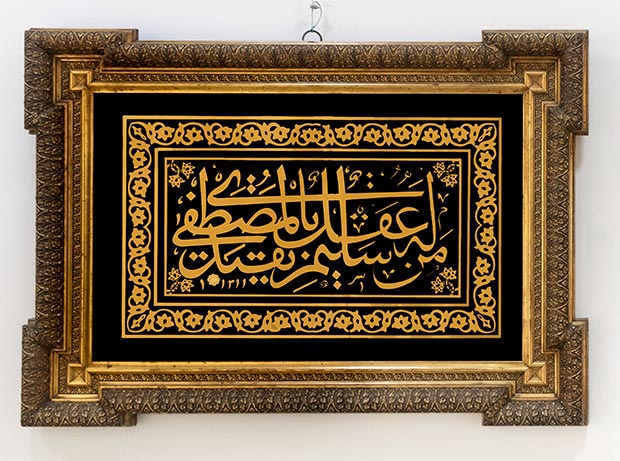 من له عقل سليم يقتدي بالمصطفى
١٣١١